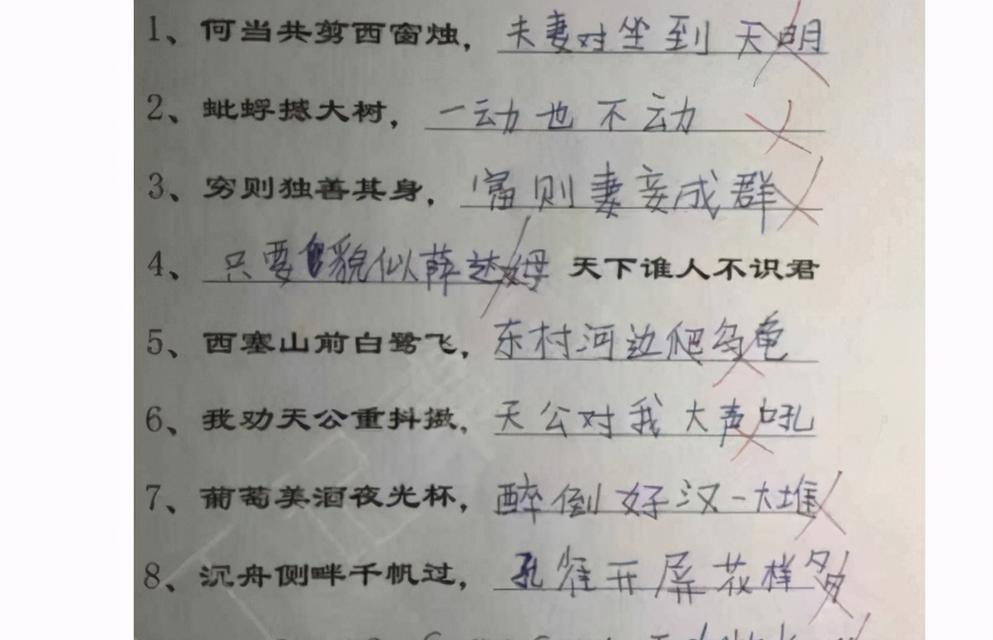 1、何当共剪西窗烛，夫妻对坐到天明
2、蚍蜉撼大树，一动也不动
3、穷则独善其身，富则妻妾成群
4、只要貌似薛达母 天下谁人不识君
5、西塞山前白鹭飞，东村河边爬乌龟
6、我劝天公重抖擞，天公对我大声吼
7、葡萄美酒夜光杯，醉倒好汉一大堆
8、沉舟侧畔千帆过，孔雀开屏花样多